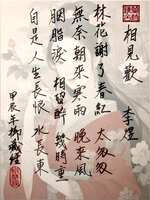 相見歡
李煜
林花謝了春紅 太匆匆
無奈朝來寒雨 晚來風
胭脂淚 相留醉 幾時重
自是人生長恨 水長東
甲辰年柳